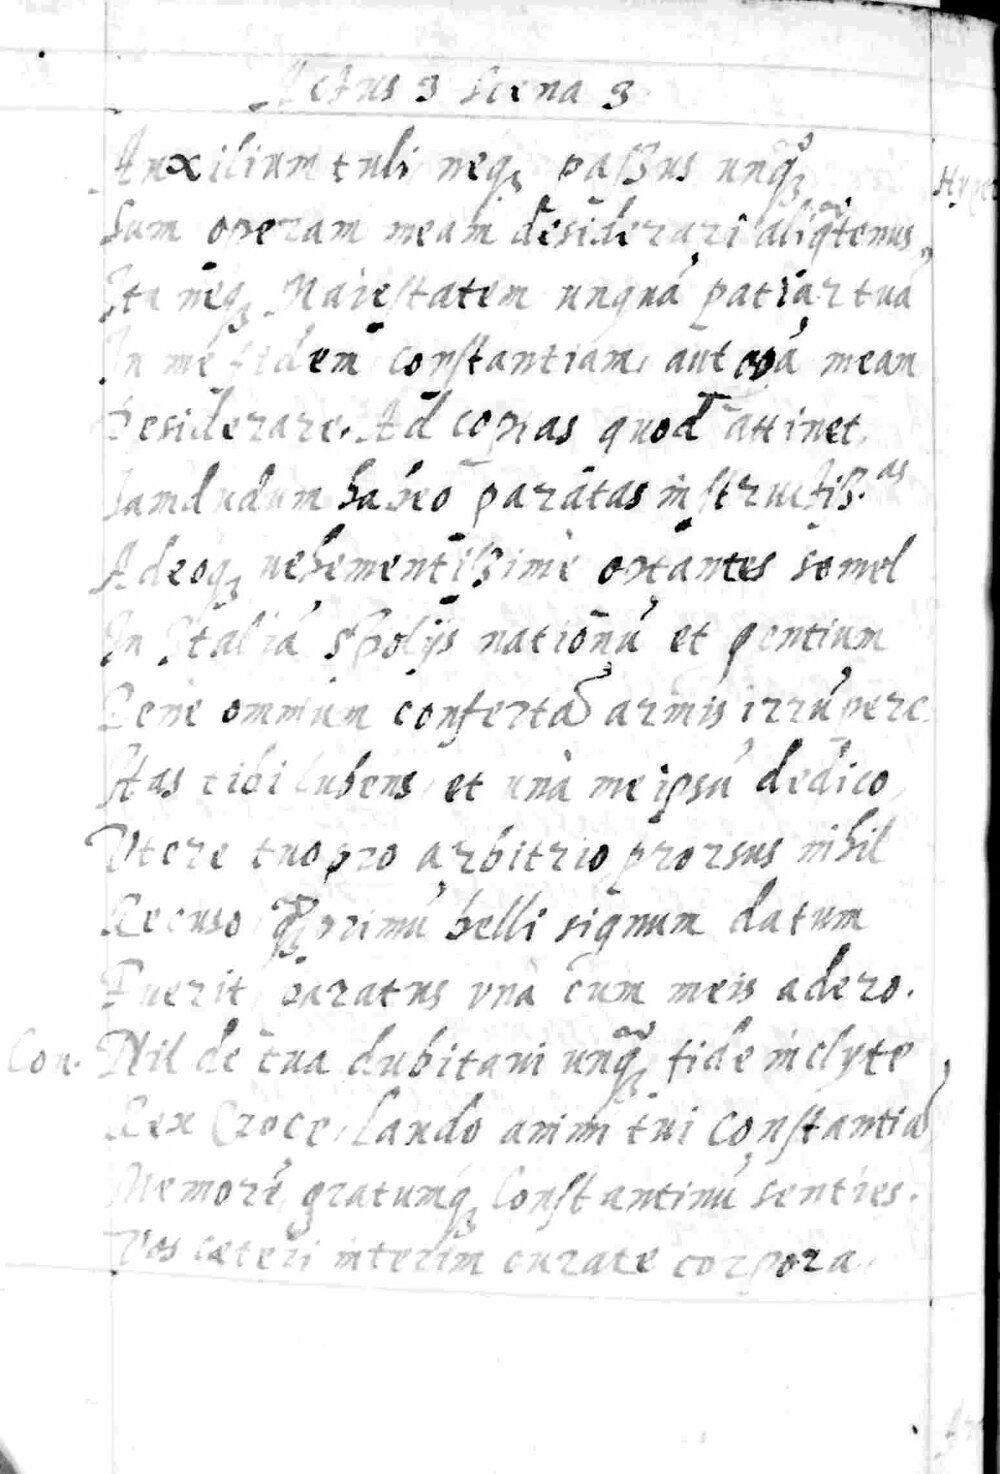 Actus 3 Scena 3
Auxilium tuli neq; passus unq̃
Sum operam meam desiderari aliq̃tenus,
Ita neq; Maiestatem unquā patiar tuā
In me fidem constantiam, aut meam
Desiderare. Ad copias quod attinet,
Iamdudum habeo paratas instructiss.as
Adeoq; vehementissime optantes semel
In Italiā spolijs nationū et gentium
Pene omnium confertā armis irrūpere
Has tibi lubens, et unà meipsū dedico,
Vtere tuo pro arbitrio, prorsus nihil
Recuso, q̃primū belli signum datum
Fuerit, paratus vnà cum meis adero.
Con. Nil de tua dubitavi unq̃ fide inclyte
Rex Croce, laudo animi tui constantiā,
Memorē, gratumq; Constantinū senties.
Vos cæteri interim curate corpora.